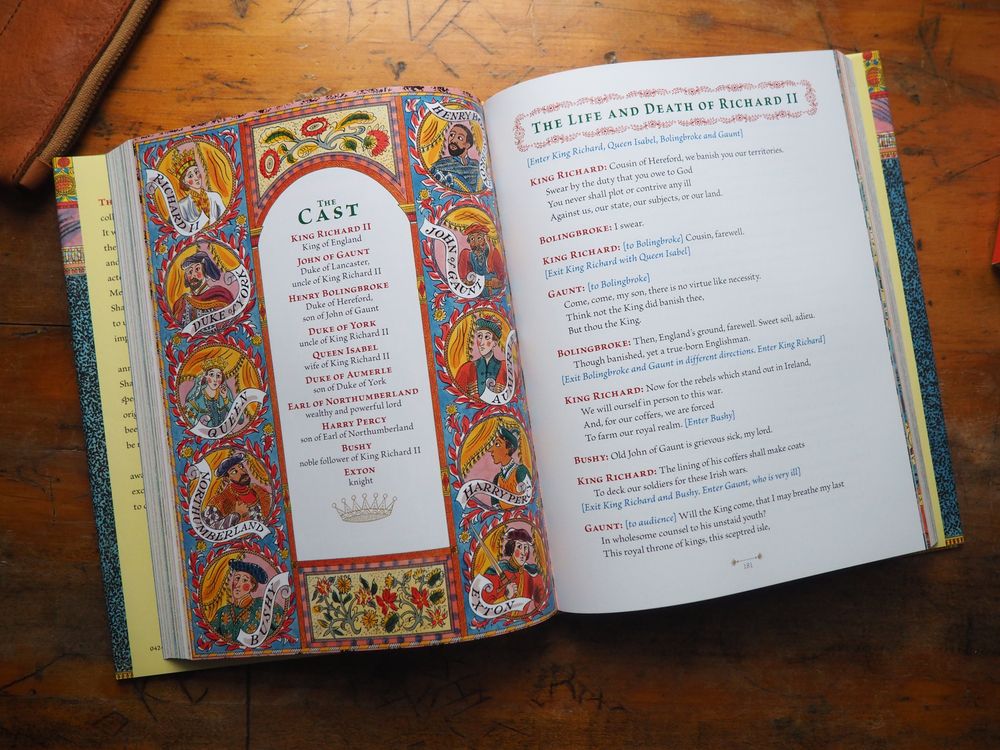 RICHARD II
DUKE of YORK
QUEEN
NORTHUMBERLAND
BUSHY
THE
CAST
KING RICHARD II
King of England
JOHN OF GAUNT
Duke of Lancaster,
uncle of King Richard II
HENRY BOLINGBROKE
Duke of Hereford,
son of John of Gaunt
DUKE OF YORK
uncle of King Richard II
QUEEN ISABEL
wife of King Richard II
DUKE OF AUMERLE
son of Duke of York
EARL OF NORTHUMBERLAND
wealthy and powerful lord
HARRY PERCY
son of Earl of Northumberland
BUSHY
noble follower of King Richard II
EXTON
knight
HENRY
JOHN of GAUNT
HARRY
EXTON
THE LIFE AND DEATH OF RICHARD II
[Enter King Richard, Queen Isabel, Bolingbroke and Gaunt]
KING RICHARD: Cousin of Hereford, we banish you our territories.
Swear by the duty that you owe to God
You never shall plot or contrive any ill
Against us, our state, our subjects, or our land.
BOLINGBROKE: I swear.
KING RICHARD: [to Bolingbroke] Cousin, farewell.
[Exit King Richard with Queen Isabel]
GAUNT: [to Bolingbroke]
Come, come, my son, there is no virtue like necessity.
Think not the King did banish thee,
But thou the King.
BOLINGBROKE: Then, England's ground, farewell. Sweet soil, adieu.
Though banished, yet a true-born Englishman.
[Exit Bolingbroke and Gaunt in different directions. Enter King Richard]
KING RICHARD: Now for the rebels which stand out in Ireland,
We will ourself in person to this war.
And, for our coffers, we are forced
To farm our royal realm. [Enter Bushy]
BUSHY: Old John of Gaunt is grievous sick, my lord.
KING RICHARD: The lining of his coffers shall make coats
To deck our soldiers for these Irish wars.
[Exit King Richard and Bushy. Enter Gaunt, who is very ill]
GAUNT: [to audience] Will the King come, that I may breathe my last
In wholesome counsel to his unstaid youth?
This royal throne of kings, this sceptred isle,
181